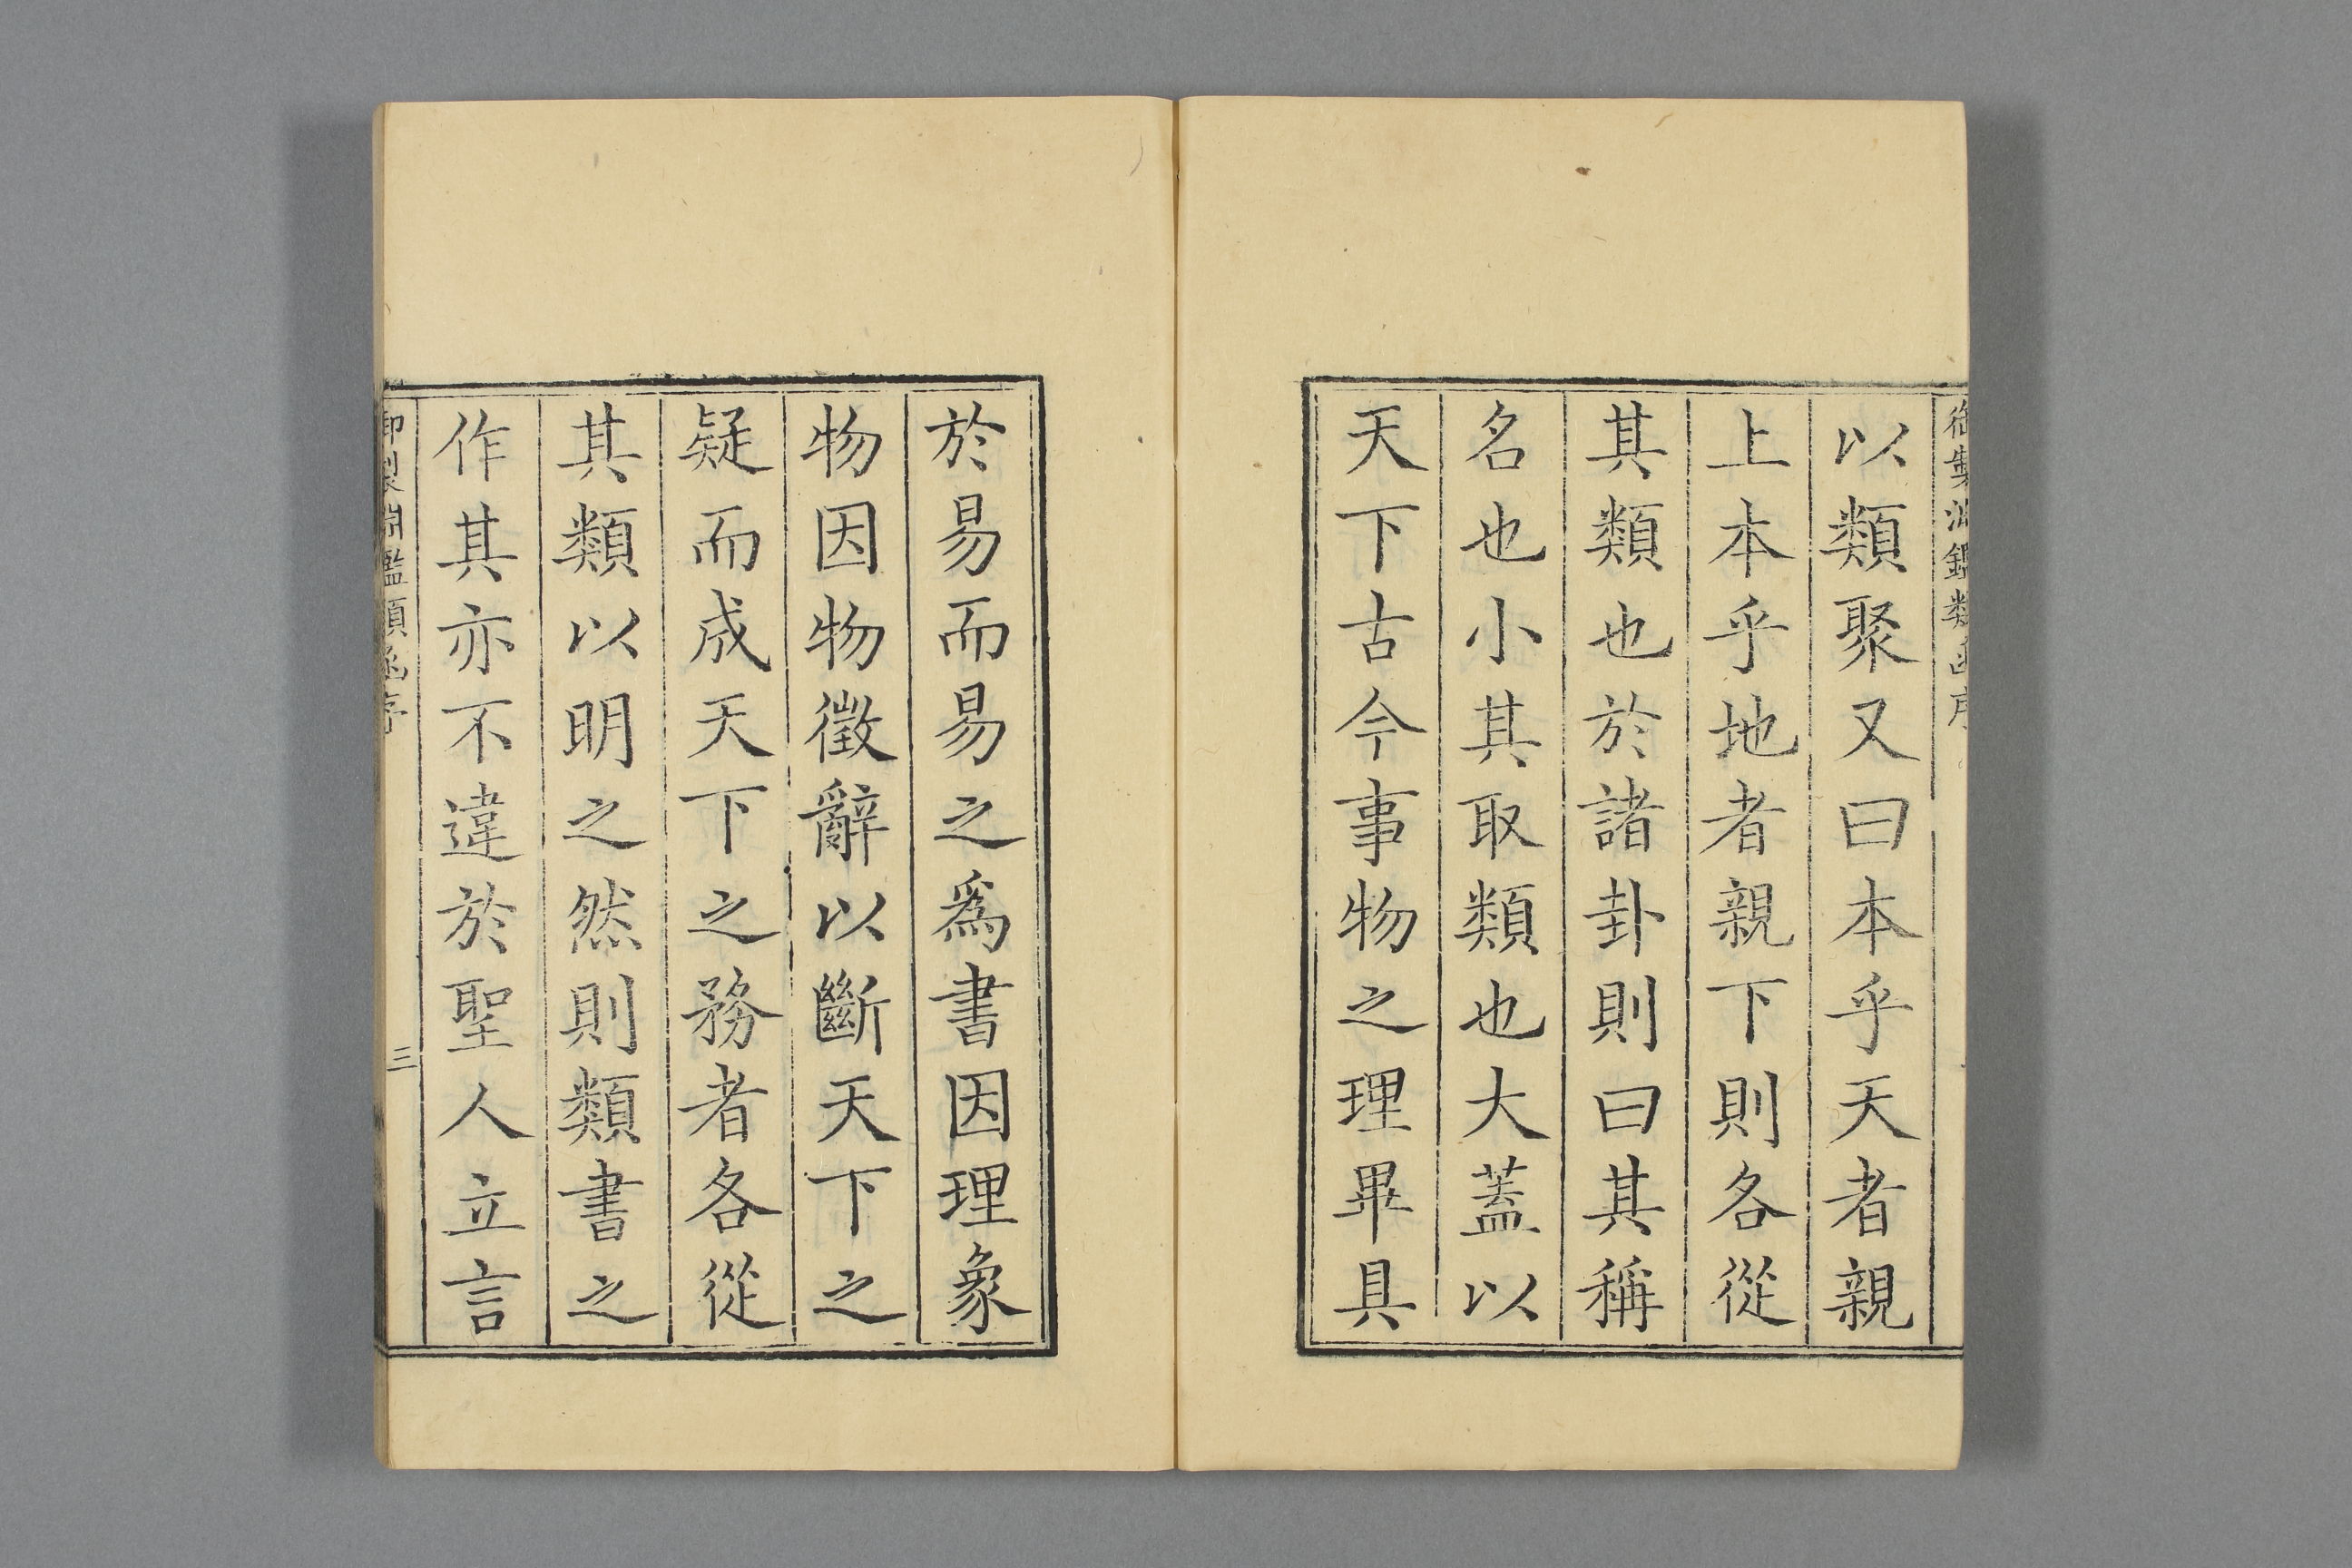 御製淵鑑類函序
以類聚又曰本乎天者親
上本乎地者親下則各從
其類也於諸卦則曰其稱
名也小其取類也大蓋以
天下古今事物之理畢具
於易而易之爲書因理象
物因物徵辭以斷天下之
疑而成天下之務者各從
其類以明之然則類書之
作其亦不違於聖人立言
御製淵鑑類函序
三